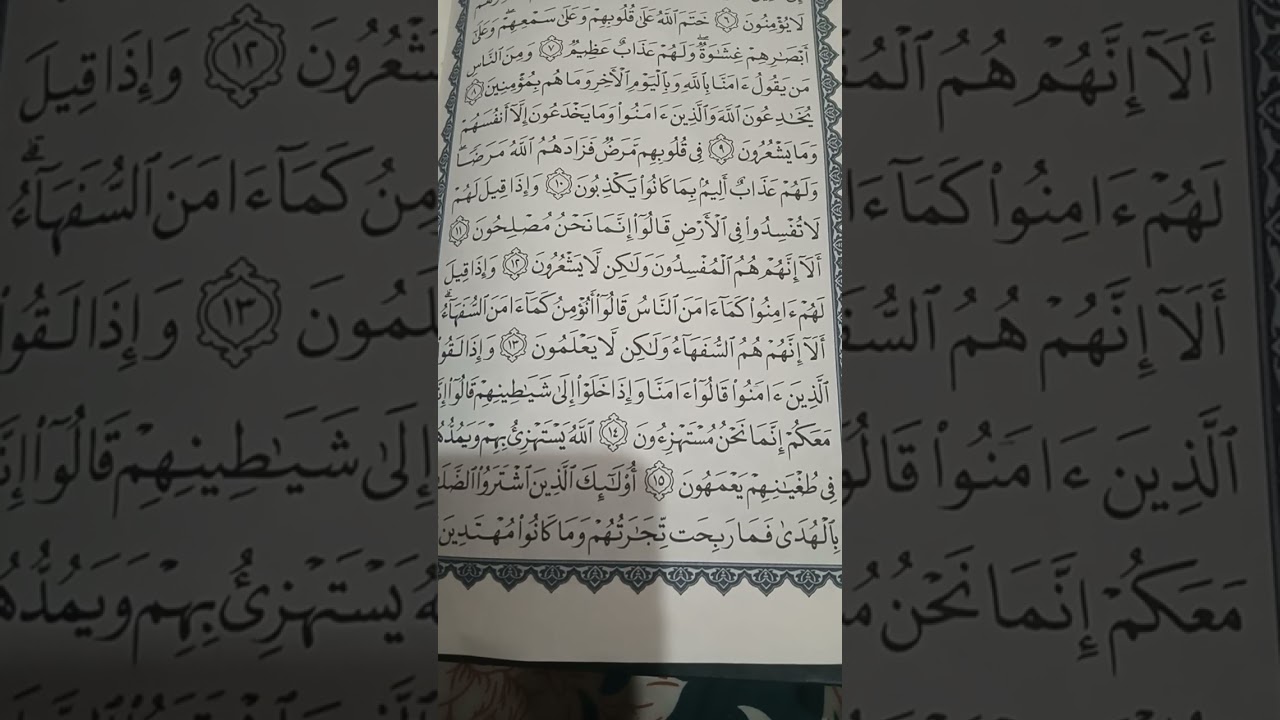 لَا يُؤْمِنُونَ ٦ خَتَمَ ٱللَّهُ عَلَىٰ قُلُوبِهِمْ وَعَلَىٰ سَمْعِهِمْ ۖ وَعَلَىٰٓ
أَبْصَـٰرِهِمْ غِشَـٰوَةٌ ۖ وَلَهُمْ عَذَابٌ عَظِيمٌ ٧ وَمِنَ ٱلنَّاسِ
مَن يَقُولُ ءَامَنَّا بِٱللَّهِ وَبِٱلْيَوْمِ ٱلْـَٔاخِرِ وَمَا هُم بِمُؤْمِنِينَ ٨
يُخَـٰدِعُونَ ٱللَّهَ وَٱلَّذِينَ ءَامَنُوا۟ وَمَا يَخْدَعُونَ إِلَّآ أَنفُسَهُمْ
وَمَا يَشْعُرُونَ ٩ فِى قُلُوبِهِم مَّرَضٌ فَزَادَهُمُ ٱللَّهُ مَرَضًا ۖ
وَلَهُمْ عَذَابٌ أَلِيمٌۢ بِمَا كَانُوا۟ يَكْذِبُونَ ١٠ وَإِذَا قِيلَ لَهُمْ
لَا تُفْسِدُوا۟ فِى ٱلْأَرْضِ قَالُوٓا۟ إِنَّمَا نَحْنُ مُصْلِحُونَ ١١
أَلَآ إِنَّهُمْ هُمُ ٱلْمُفْسِدُونَ وَلَـٰكِن لَّا يَشْعُرُونَ ١٢ وَإِذَا قِيلَ
لَهُمْ ءَامِنُوا۟ كَمَآ ءَامَنَ ٱلنَّاسُ قَالُوٓا۟ أَنُؤْمِنُ كَمَآ ءَامَنَ ٱلسُّفَهَآءُ ۗ
أَلَآ إِنَّهُمْ هُمُ ٱلسُّفَهَآءُ وَلَـٰكِن لَّا يَعْلَمُونَ ١٣ وَإِذَا لَقُوا۟
ٱلَّذِينَ ءَامَنُوا۟ قَالُوٓا۟ ءَامَنَّا وَإِذَا خَلَوْا۟ إِلَىٰ شَيَـٰطِينِهِمْ قَالُوٓا۟
مَعَكُمْ إِنَّمَا نَحْنُ مُسْتَهْزِءُونَ ١٤ ٱللَّهُ يَسْتَهْزِئُ بِهِمْ وَيَمُدُّهُ
فِى طُغْيَـٰنِهِمْ يَعْمَهُونَ ١٥ أُو۟لَـٰٓئِكَ ٱلَّذِينَ ٱشْتَرَوُا۟
بِٱلْهُدَىٰ فَمَا رَبِحَت تِّجَـٰرَتُهُمْ وَمَا كَانُوا۟ مُهْتَدِينَ